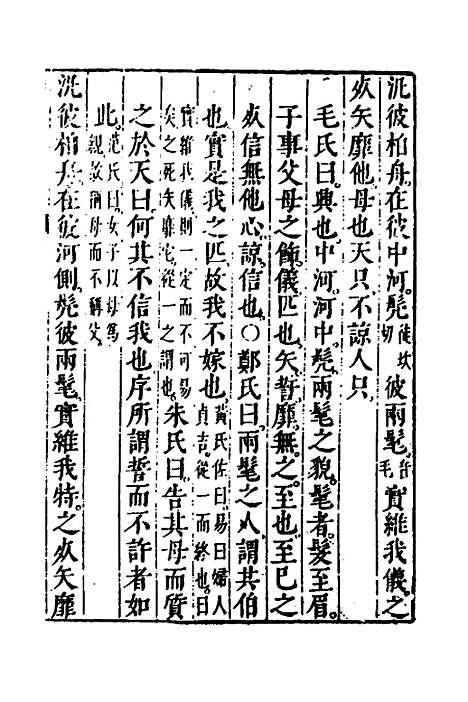 汎彼柏舟在彼中河髧徒坎切彼兩髦音毛實維我儀之
死矢靡他母也天只不諒人只
毛氏曰興也中河河中髧兩髦之貌髦者髮至眉
子事父母之飾儀匹也矢誓靡無之至也至已之
死信無他心諒信也○鄭氏曰兩髦之人謂共伯
也實是我之匹故我不嫁也黃氏佐曰易曰婦人貞吉從一而終也曰
實維我儀則一定而不可易矣之死矢靡它從一之謂也朱氏曰告其母而質
之於天曰何其不信我也序所謂誓而不許者如
此范氏曰女子以母為親故稱母而不稱父
汎彼柏舟在彼河側髧彼兩髦實維我特之死矢靡